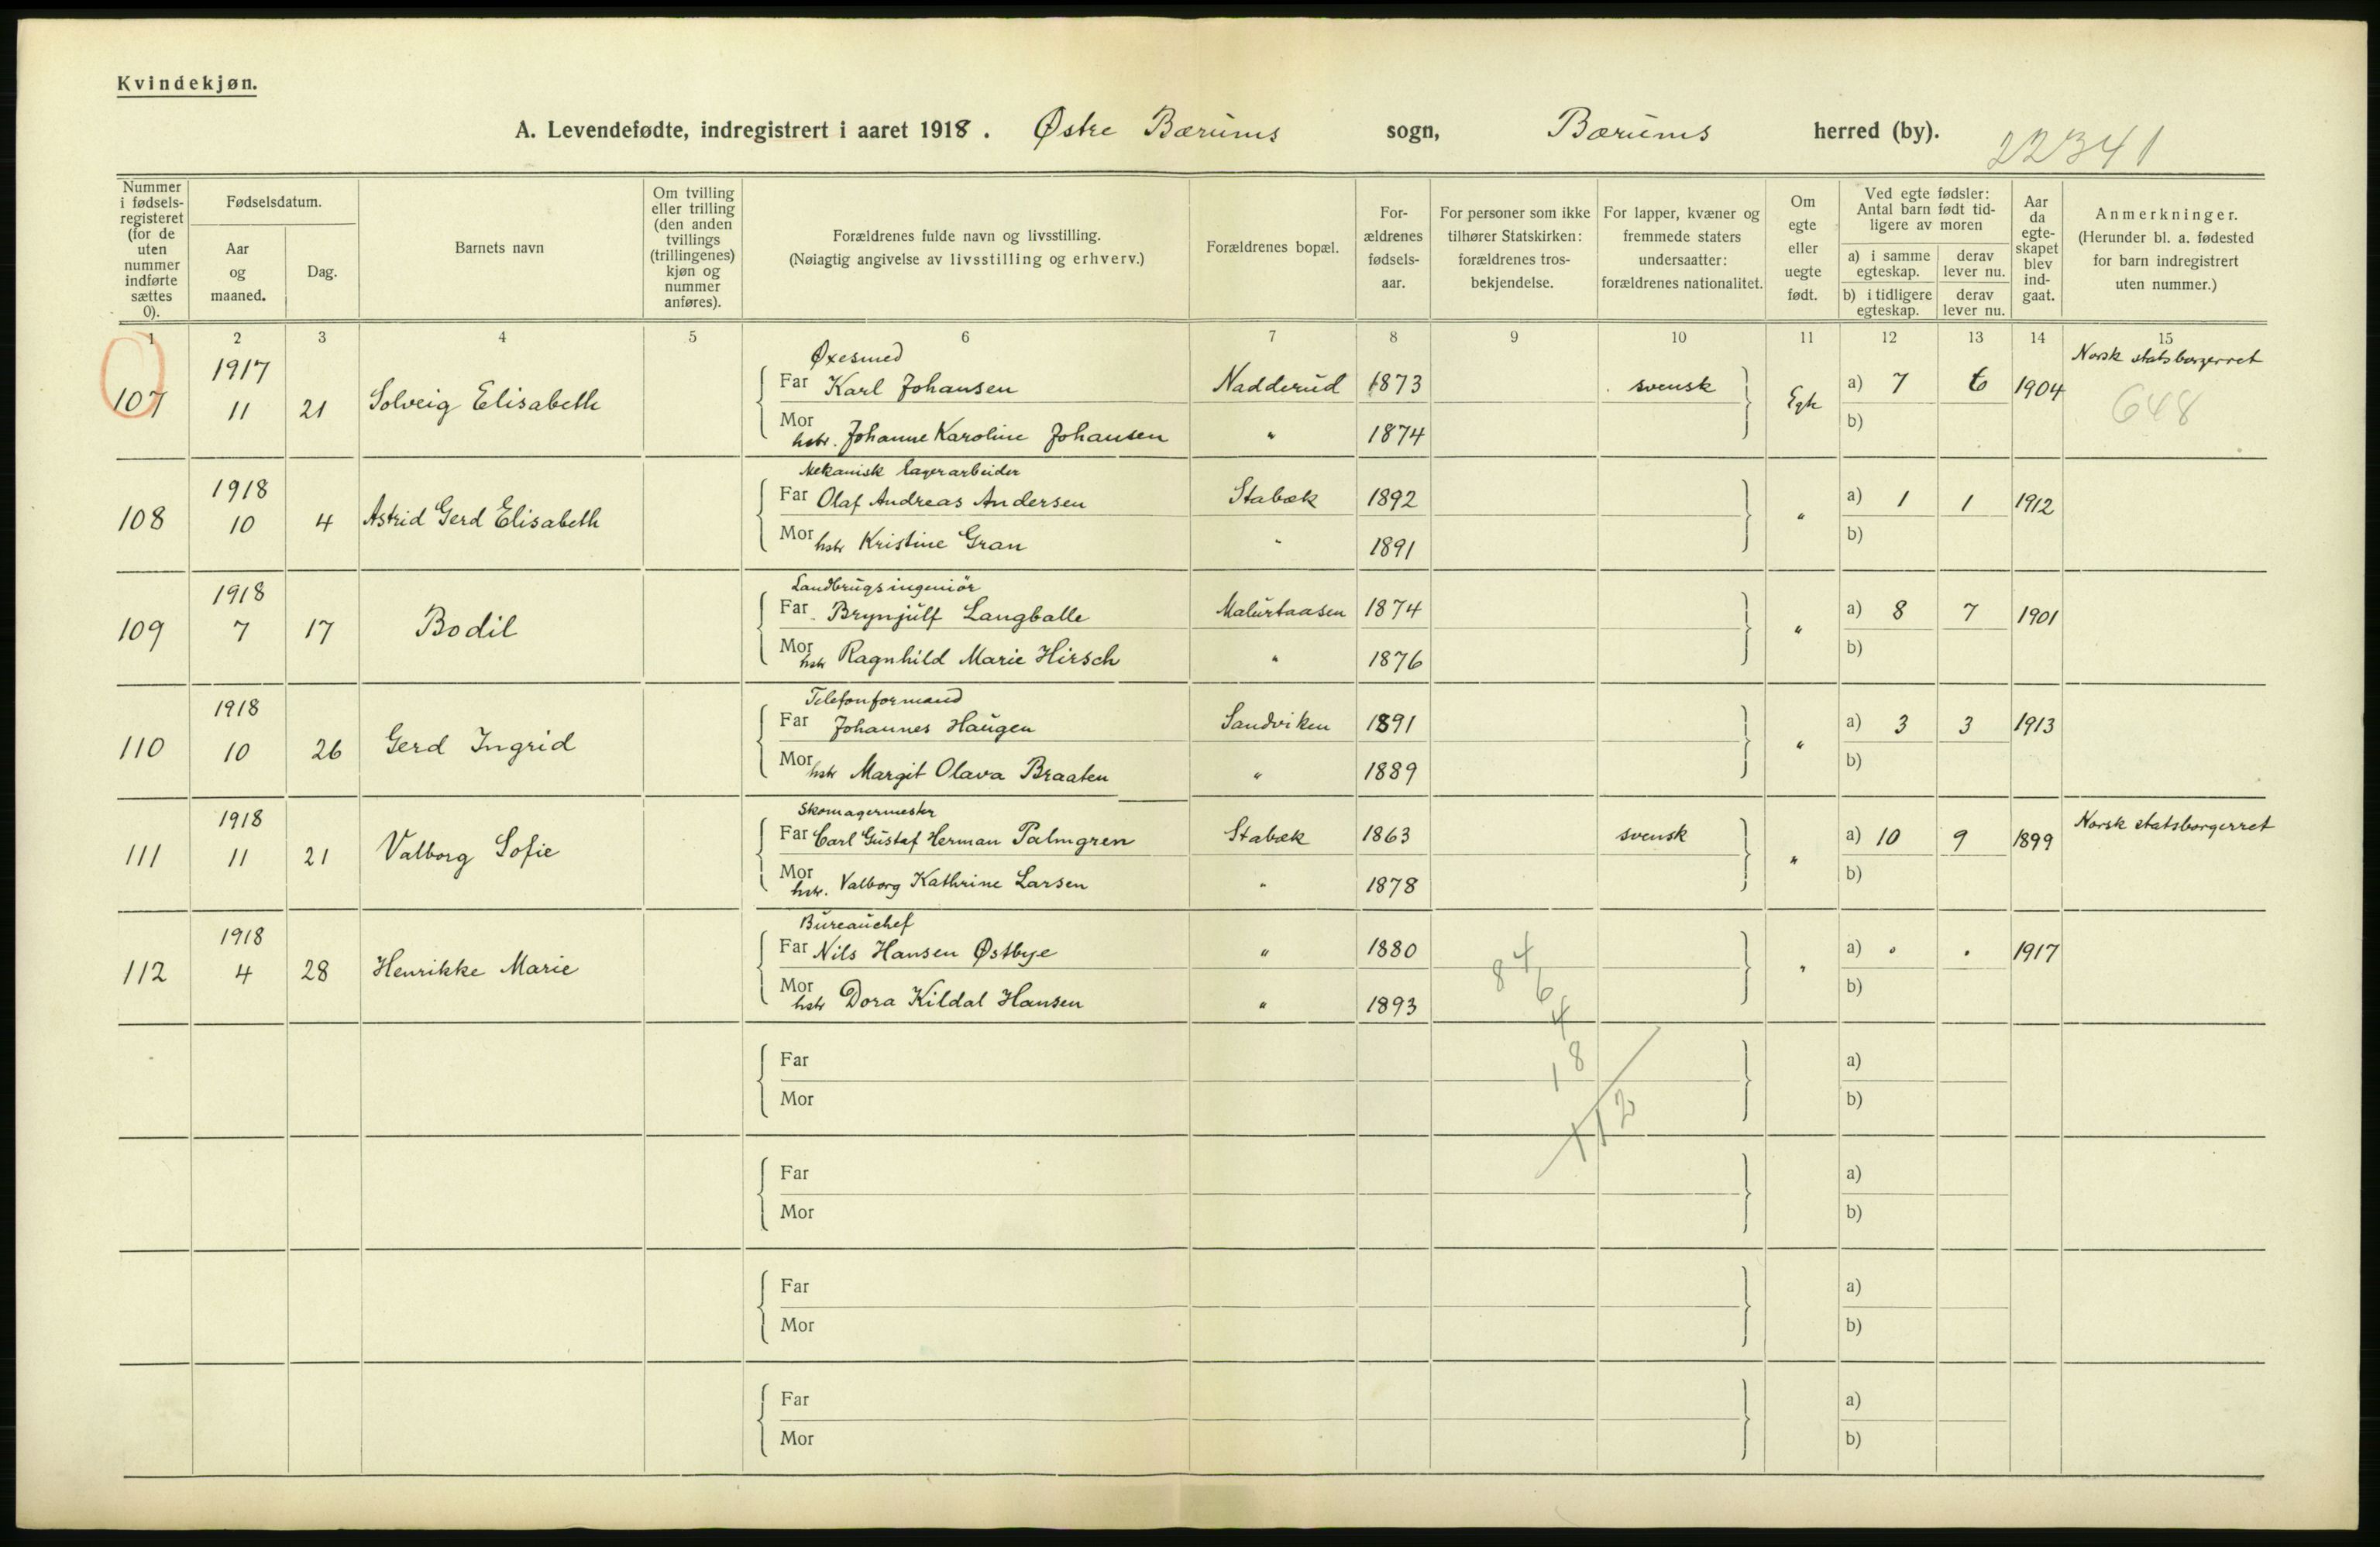 Kvindekjøn.
A. Levendefødte, indregistrert i aaret 1918. Østre Bærums sogn, Bærums herred (by).
22341
Nummer i fødsels-registeret (for de uten nummer indførte sættes 0).
Fødselsdatum.
Aar og maaned.
Dag.
Barnets navn
Om tvilling eller trilling (den anden tvillings (trillingenes) kjøn og nummer anføres).
Forældrenes fulde navn og livsstilling.
(Nøiagtig angivelse av livsstilling og erhverv.)
Forældrenes bopæl.
For-ældrenes fødsels-aar.
For personer som ikke tilhører Statskirken: forældrenes tros-bekjendelse.
For lapper, kvæner og fremmede staters undersaatter: forældrenes nationalitet.
Om egte eller uegte født.
Ved egte fødsler: Antal barn født tid-ligere av moren
a) i samme egteskap. derav lever nu.
b) i tidligere egteskap. derav lever nu.
Aar da egte-skapet blev ind-gaat.
Anmerkninger.
(Herunder bl. a. fødested for barn indregistrert uten nummer.)
1 2 3 4 5 6 7 8 9 10 11 12 13 14 15
1917 Øxesmed Norsk statsborgerret
107 11 21 Solveig Elisabeth Far Karl Johansen Nadderud 1873 svensk Egte a) 7 6 1904
Mor hstr. Johanne Karoline Johansen " 1874 b) 648
1918 Mekanisk lagerarbeider
108 10 4 Astrid Gerd Elisabeth Far Olaf Andreas Andersen Stabæk 1892 " a) 1 1 1912
Mor hstr Kristine Gran " 1891 b)
1918 Landbrugsingeniör
109 7 17 Bodil Far Brynjulf Langballe 1874 " a) 8 7 1901
Mor hstr Ragnhild Marie Hirsch " 1876 b)
1918 Telefonformand
110 10 26 Gerd Ingrid Far Johannes Haugen Sandviken 1891 " a) 3 3 1913
Mor hstr Margit Olava Braaten " 1889 b)
1918 Skomagermester Norsk statsborgerret
111 11 21 Valborg Sofie Far Carl Gustaf Herman Palmgren Stabæk 1863 svensk " a) 10 9 1899
Mor hstr. Valborg Kathrine Larsen " 1878 b)
1918 Bureauchef
112 4 28 Henrikke Marie Far Nils Hansen Østbye " 1880 " a) 1917
Mor hstr Dora Kildal Hansen " 1893 b)
8 4
6
4
18
112
Far a)
Mor b)
Far a)
Mor b)
Far a)
Mor b)
Far a)
Mor b)